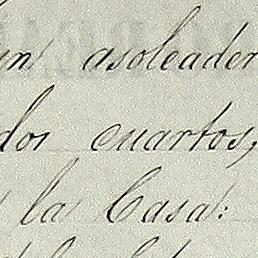 un asoleader
dos cuartos,
la Casa: